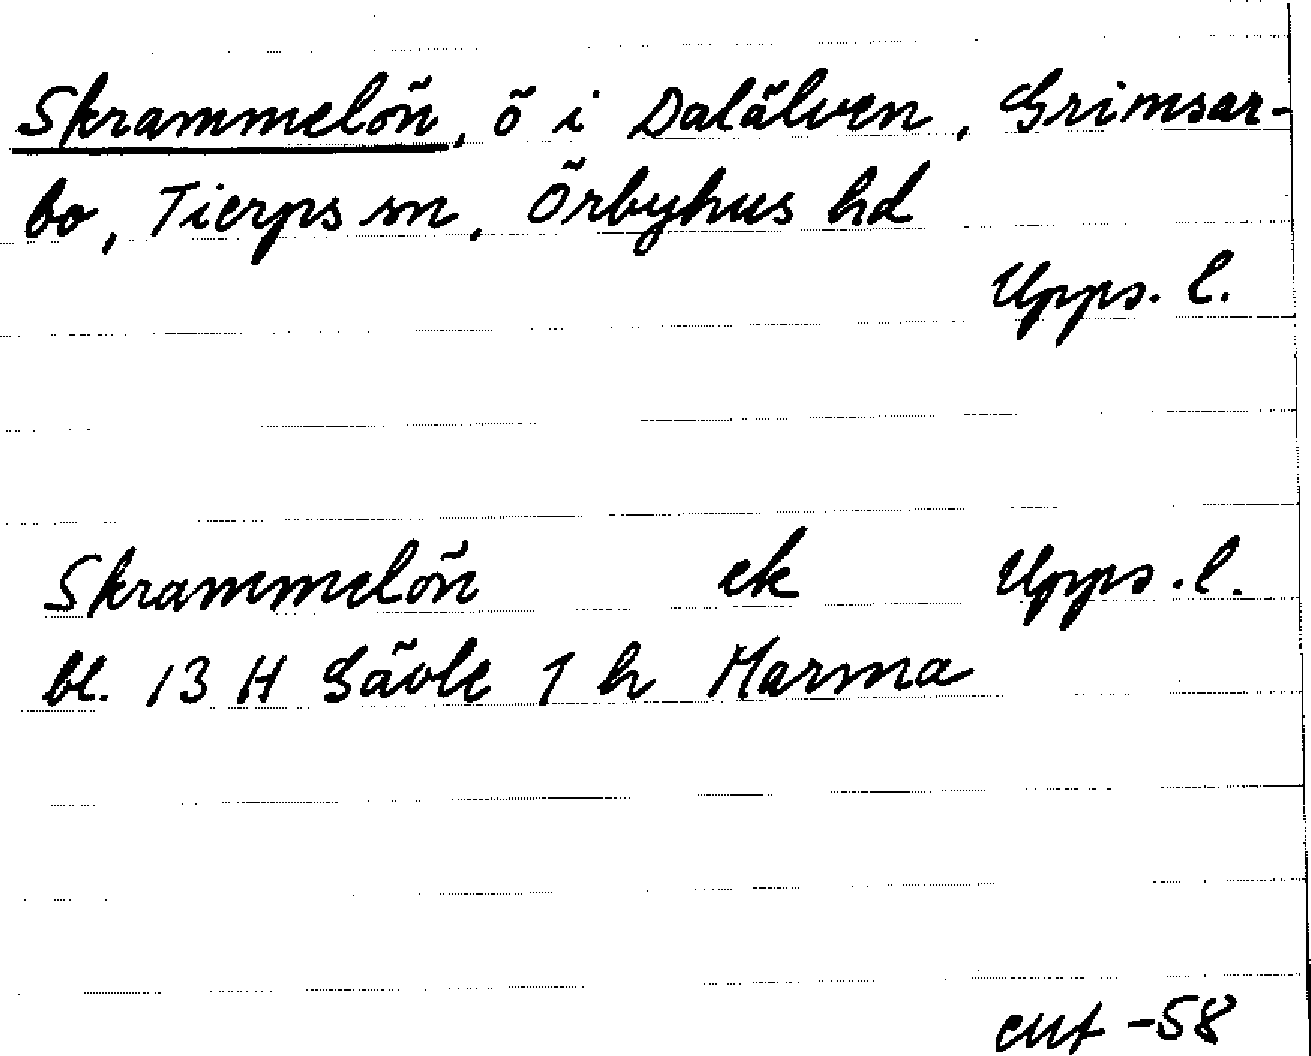 Skrammelön, ö i Dalälven, Grimsar-
bo, Tierps sn, Örbyhus hd
Upps. l.
Skrammelön ek Upps. l.
bl. 13 H Gävle 1 h Marma
-58